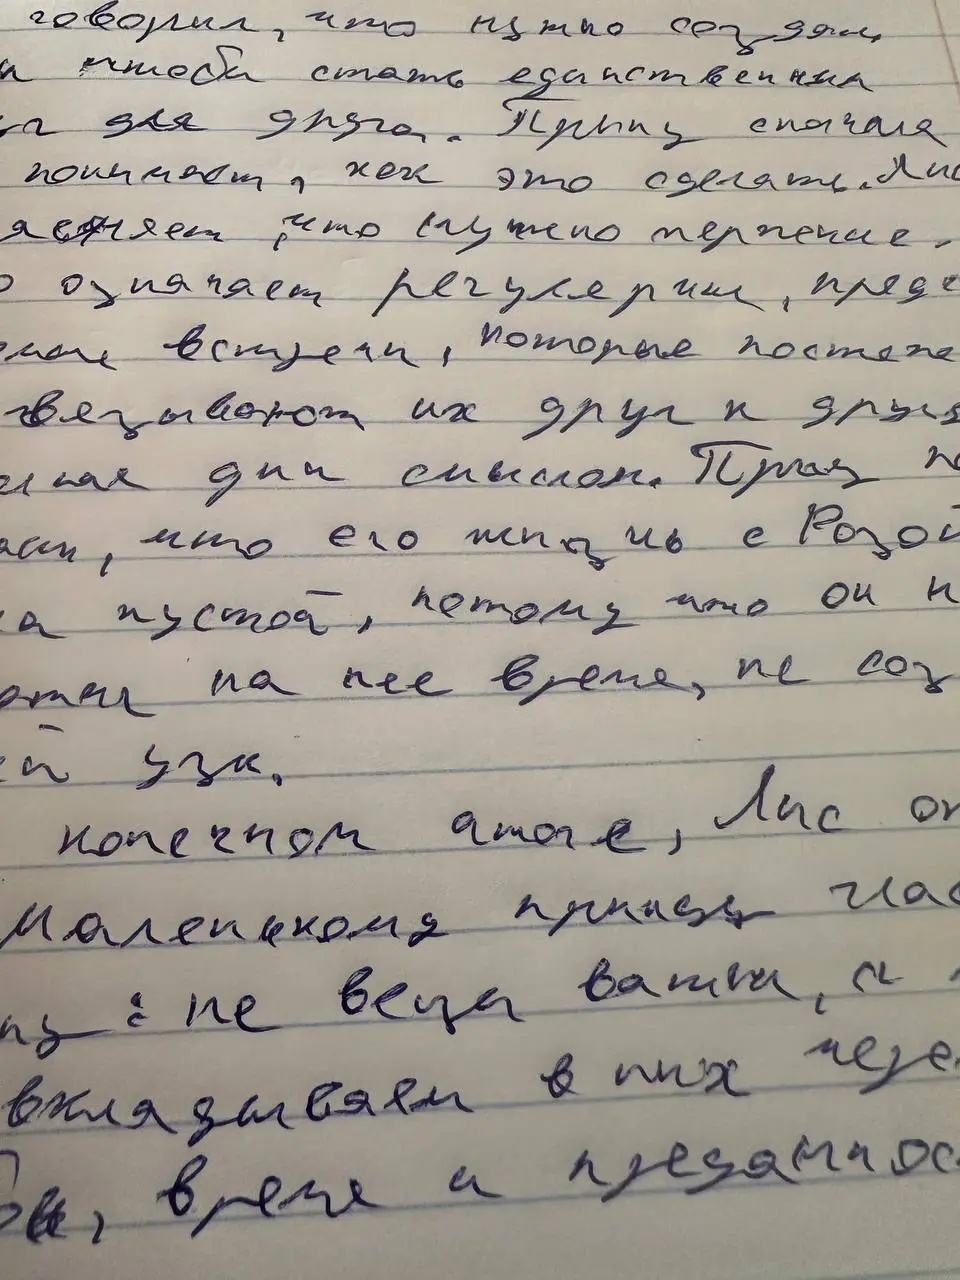 говорил, что нужно создать
чтобы стать единственным
для друга. Принц сначала
понимает, как это сделать. Лис
ясняет, что нужно терпение.
означает регулярные, пред
встречи, которые постепе
связывают их друг к другу
дни смыслом. Принц по
что его жизнь с Розой
пустой, потому что он н
на нее время, не соз
ей узы.
конечном итоге, Лис от
Маленькому принцу час
ну: не вещи важны, а
вкладываем в них через
время и преданнос